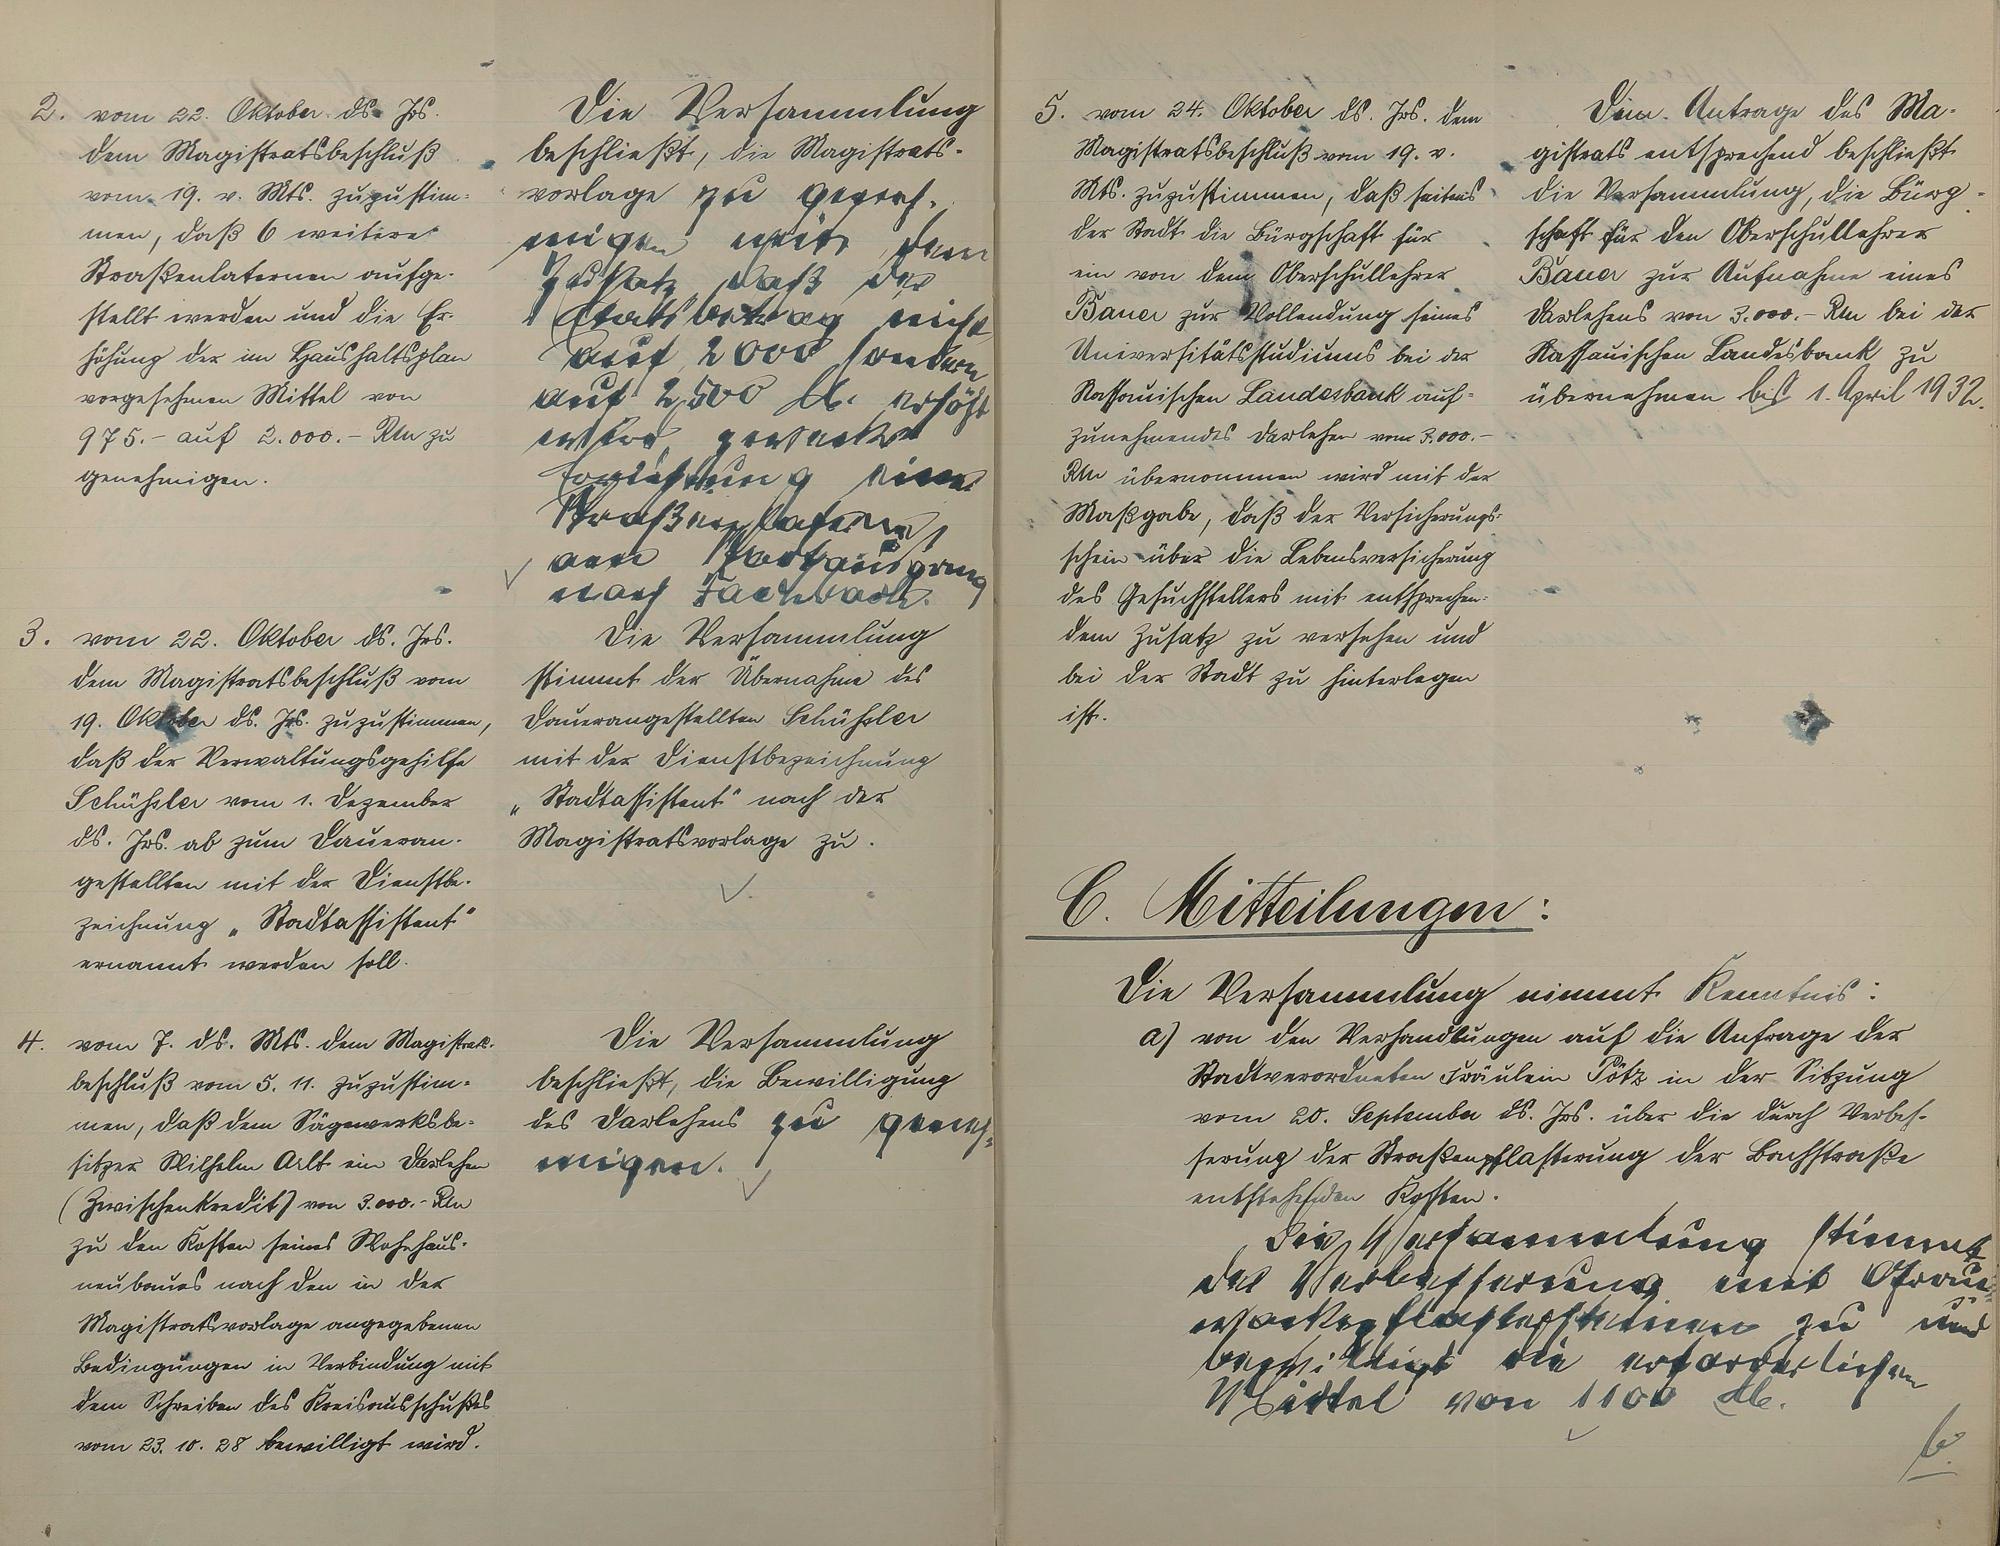 2. vom 22. Oktober ds. Jrs.
dem Magistratsbeschluß
vom 19. v. Mts. zuzustim-
men, daß 6 weitere
Straßenlaternen aufge-
stellt werden und die Er-
höhung der im Haushaltsplan
vorgesehenen Mittel von
975.- auf 2.000.- Rm zu
genehmigen.
Die Versammlung
beschließt, die Magistrats-
vorlage zu geneh-
migen mit dem
Zusatz, daß der
Etatsbetrag nicht
auf 2000 sondern
auf 2500 M. erhöht
wird zwecks
Errichtung einer
Straßenlaterne
am Stadtausgang
nach Fachbach.
3. vom 22. Oktober ds. Jrs.
dem Magistratsbeschluß vom
19. Oktober ds. Jrs. zuzustimmen,
daß der Verwaltungsgehilfe
Schüßler vom 1. Dezember
ds. Jrs. ab zum Daueran-
gestellten mit der Dienstbe-
zeichnung „Stadtassistent"
ernannt werden soll.
Die Versammlung
stimmt der Übernahme des
Dauerangestellten Schüßler
mit der Dienstbezeichnung
„Stadtassistent" nach der
Magistratsvorlage zu.
4. vom 7. ds. Mts. dem Magistrats-
beschluß vom 5. 11. zuzustim-
men, daß dem Sägewerksbe-
sitzer Wilhelm Arlt ein Darlehen
(Zwischenkredit) von 3.000.- Rm
zu den Kosten seines Wohnhaus-
neubaues nach den in der
Magistratsvorlage angegebenen
Bedingungen in Verbindung mit
dem Schreiben des Kreisausschußes
vom 23. 10. 28 bewilligt wird.
Die Versammlung
beschließt, die Bewilligung
des Darlehens zu geneh-
migen.
5. vom 24. Oktober ds. Jrs. dem
Magistratsbeschluß vom 19. v.
Mts. zuzustimmen, daß seitens
der Stadt die Bürgschaft für
ein von dem Oberschullehrer
Bauer zur Vollendung seines
Universitätsstudiums bei der
Nassauischen Landesbank auf-
zunehmendes Darlehen vom 3.000.-
Rm übernommen wird mit der
Maßgabe, daß der Versicherungs-
schein über die Lebensversicherung
des Gesuchstellers mit entsprechen-
dem Zusatz zu versehen und
bei der Stadt zu hinterlegen
ist.
Dem Antrage des Ma-
gistrats entsprechend beschließt
die Versammlung, die Bürg-
schaft für den Oberschullehrer
Bauer zur Aufnahme eines
Darlehens von 3.000.- Rm bei der
Nassauischen Landesbank zu
übernehmen bis 1. April 1932.
C. Mitteilungen:
Die Versammlung nimmt Kenntnis:
a) von den Verhandlungen auf die Anfrage der
Stadtverordneten Fräulein Pötz in der Sitzung
vom 20. September ds. Jrs. über die durch Verbes-
serung der Straßenpflasterung der Bachstraße
entstehenden Kosten.
Die Versammlung stimmt
der Verbesserung mit Grau-
wackepflastersteinen zu und
bewilligt die erforderlichen
Mittel von 1100 M.